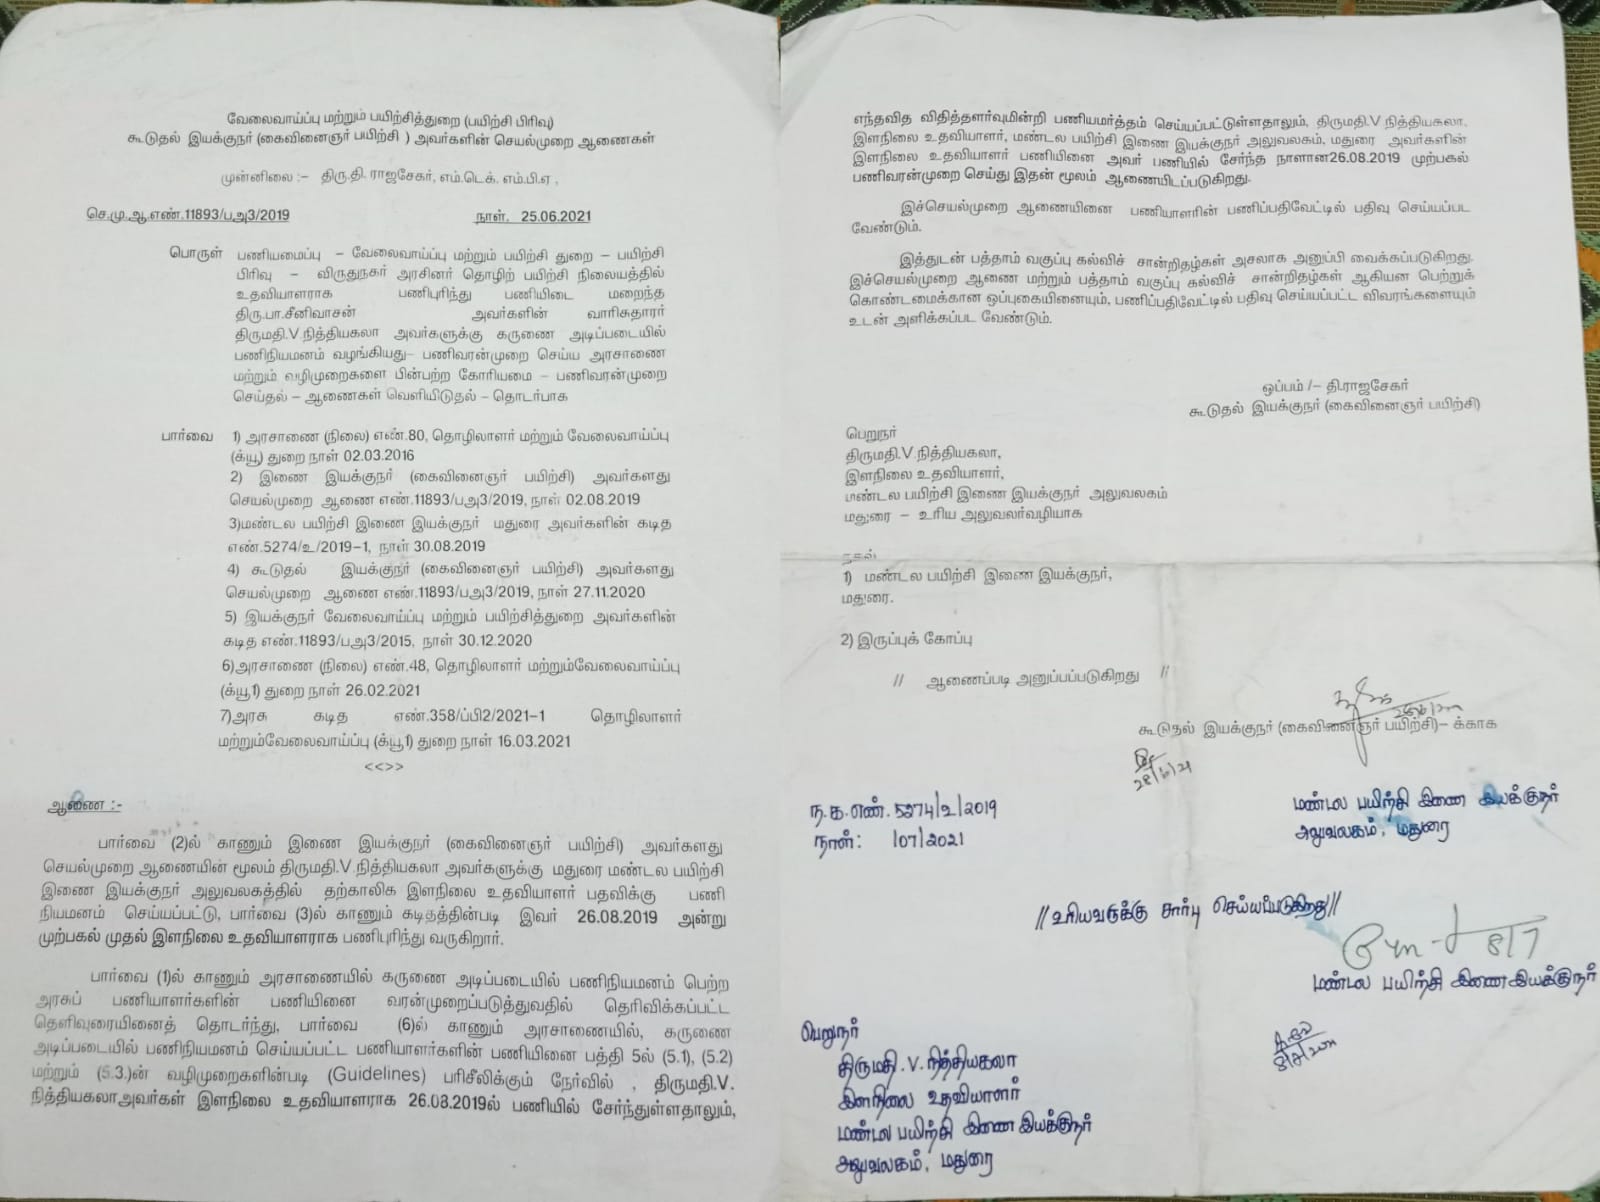 வேலைவாய்ப்பு மற்றும் பயிற்சித்துறை (பயிற்சி பிரிவு)
கூடுதல் இயக்குநர் (கைவினைஞர் பயிற்சி ) அவர்களின் செயல்முறை ஆணைகள்
முன்னிலை :– திரு.தி. ராஜசேகர், எம்.டெக். எம்.பி.ஏ ,
செ.மு.ஆ.எண்.11893/பஅ3/2019 நாள். 25.06.2021
பொருள் பணியமைப்பு – வேலைவாய்ப்பு மற்றும் பயிற்சி துறை – பயிற்சி
பிரிவு – விருதுநகர் அரசினர் தொழிற் பயிற்சி நிலையத்தில்
உதவியாளராக பணிபுரிந்து பணியிடை மறைந்த
திரு.பா.சீனிவாசன் அவர்களின் வாரிசுதாரர்
திருமதி.V.நித்தியகலா அவர்களுக்கு கருணை அடிப்படையில்
பணிநியமனம் வழங்கியது– பணிவரன்முறை செய்ய அரசாணை
மற்றும் வழிமுறைகளை பின்பற்ற கோரியமை – பணிவரன்முறை
செய்தல் – ஆணைகள் வெளியிடுதல் – தொடர்பாக
பார்வை 1) அரசாணை (நிலை) எண்.80, தொழிலாளர் மற்றும் வேலைவாய்ப்பு
(க்யூ) துறை நாள் 02.03.2016
2) இணை இயக்குநர் (கைவினைஞர் பயிற்சி) அவர்களது
செயல்முறை ஆணை எண்.11893/பஅ3/2019, நாள் 02.08.2019
3)மண்டல பயிற்சி இணை இயக்குநர் மதுரை அவர்களின் கடித
எண்.5274/உ/2019–1, நாள் 30.08.2019
4) கூடுதல் இயக்குநர் (கைவினைஞர் பயிற்சி) அவர்களது
செயல்முறை ஆணை எண்.11893/பஅ3/2019, நாள் 27.11.2020
5) இயக்குநர் வேலைவாய்ப்பு மற்றும் பயிற்சித்துறை அவர்களின்
கடித எண்.11893/பஅ3/2015, நாள் 30.12.2020
6)அரசாணை (நிலை) எண்.48, தொழிலாளர் மற்றும்வேலைவாய்ப்பு
(க்யூ1) துறை நாள் 26.02.2021
7)அரசு கடித எண்.358/ப்பி2/2021–1 தொழிலாளர்
மற்றும்வேலைவாய்ப்பு (க்யூ1) துறை நாள் 16.03.2021
<<>>
ஆணை :-
பார்வை (2)ல் காணும் இணை இயக்குநர் (கைவினைஞர் பயிற்சி) அவர்களது
செயல்முறை ஆணையின் மூலம் திருமதி.V.நித்தியகலா அவர்களுக்கு மதுரை மண்டல பயிற்சி
இணை இயக்குநர் அலுவலகத்தில் தற்காலிக இளநிலை உதவியாளர் பதவிக்கு பணி
நியமனம் செய்யப்பட்டு, பார்வை (3)ல் காணும் கடிதத்தின்படி இவர் 26.08.2019 அன்று
முற்பகல் முதல் இளநிலை உதவியாளராக பணிபுரிந்து வருகிறார்.
பார்வை (1)ல் காணும் அரசாணையில் கருணை அடிப்படையில் பணிநியமனம் பெற்ற
அரசுப் பணியாளர்களின் பணியினை வரன்முறைப்படுத்துவதில் தெரிவிக்கப்பட்ட
தெளிவுரையினைத் தொடர்ந்து, பார்வை (6)ல் காணும் அரசாணையில், கருணை
அடிப்படையில் பணிநியமனம் செய்யப்பட்ட பணியாளர்களின் பணியினை பத்தி 5ல் (5.1), (5.2)
மற்றும் (5.3.)ன் வழிமுறைகளின்படி (Guidelines) பரிசீலிக்கும் நேர்வில் , திருமதி.V.
நித்தியகலாஅவர்கள் இளநிலை உதவியாளராக 26.08.2019ல் பணியில் சேர்ந்துள்ளதாலும்,
எந்தவித விதித்தளர்வுமின்றி பணியமர்த்தம் செய்யப்பட்டுள்ளதாலும், திருமதி.V நித்தியகலா,
இளநிலை உதவியாளர், மண்டல பயிற்சி இணை இயக்குநர் அலுவலகம், மதுரை அவர்களின்
இளநிலை உதவியாளர் பணியினை அவர் பணியில் சேர்ந்த நாளான26.08.2019 முற்பகல்
பணிவரன்முறை செய்து இதன் மூலம் ஆணையிடப்படுகிறது.
இச்செயல்முறை ஆணையினை பணியாளரின் பணிப்பதிவேட்டில் பதிவு செய்யப்பட
வேண்டும்.
இத்துடன் பத்தாம் வகுப்பு கல்விச் சான்றிதழ்கள் அசலாக அனுப்பி வைக்கப்படுகிறது.
இச்செயல்முறை ஆணை மற்றும் பத்தாம் வகுப்பு கல்விச் சான்றிதழ்கள் ஆகியன பெற்றுக்
கொண்டமைக்கான ஒப்புகையினையும், பணிப்பதிவேட்டில் பதிவு செய்யப்பட்ட விவரங்களையும்
உடன் அளிக்கப்பட வேண்டும்.
ஒப்பம் /– தி.ராஜசேகர்
கூடுதல் இயக்குநர் (கைவினைஞர் பயிற்சி)
பெறுநர்
திருமதி.V.நித்தியகலா,
இளநிலை உதவியாளர்,
மண்டல பயிற்சி இணை இயக்குநர் அலுவலகம்
மதுரை – உரிய அலுவலர்வழியாக
நகல்
1) மண்டல பயிற்சி இணை இயக்குநர்,
மதுரை.
2) இருப்புக் கோப்பு
// ஆணைப்படி அனுப்பப்படுகிறது //
கூடுதல் இயக்குநர் (கைவினைஞர் பயிற்சி)– க்காக
28/6/21
ந.க.எண். 5274/உ/2019
நாள்: /07/2021
மண்டல பயிற்சி இணை இயக்குநர்
அலுவலகம், மதுரை
// உரியவருக்கு சார்பு செய்யப்படுகிறது//
8/7
மண்டல பயிற்சி இணைஇயக்குநர்
பெறுநர்
திருமதி.V.நித்தியகலா
இளநிலை உதவியாளர்
மண்டல பயிற்சி இணை இயக்குநர்
அலுவலகம், மதுரை